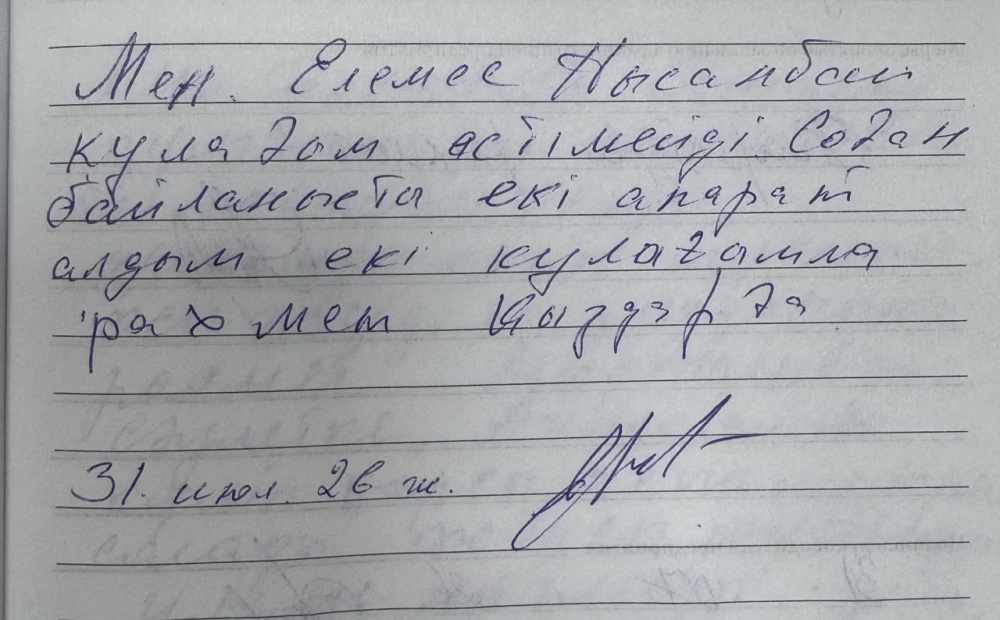 Мен. Елемес Нысанбай
кулағом естімейді. Соған
байланысты екі апарат
алдым екі кулағамла
рахмет Қыздарға
31. июл. 26 ж.